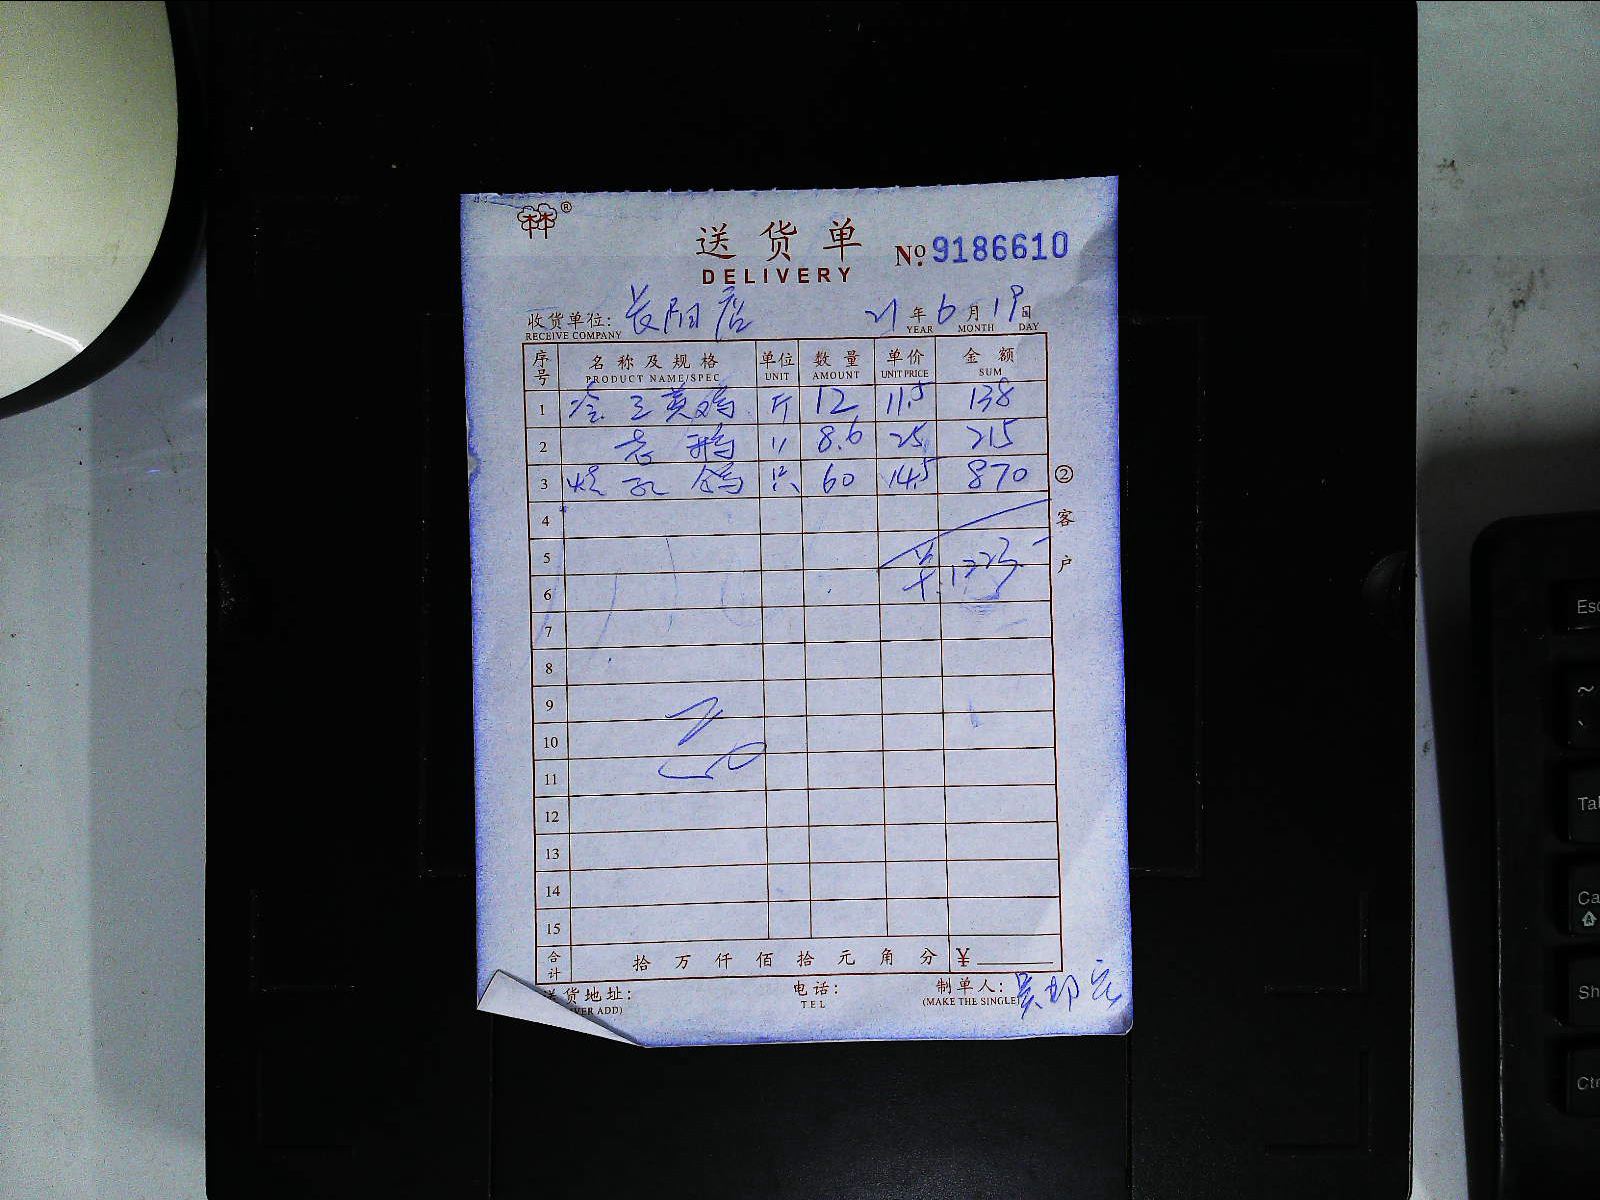 ®
送货单 No. 9186610
DELIVERY
收货单位: 长阳店 21年6月19日
RECEIVE COMPANY YEAR MONTH DAY
序号 名称及规格 单位 数量 单价 金额
PRODUCT NAME/SPEC UNIT AMOUNT UNIT PRICE SUM
1 冷 三黄鸡 斤 12 11.5 138
2 老鸭 〃 8.6 25 215
3 烧 乳 鸽 只 60 14.5 870
4
5
共 1223
6
7
8
9
10
11
12
13
14
15
合计 拾 万 仟 佰 拾 元 角 分 ¥
货地址: 电话: 制单人:
VER ADD) TEL (MAKE THE SINGLE)
② 客户
Esc
~
Tab
Ca
Sh
Ctr